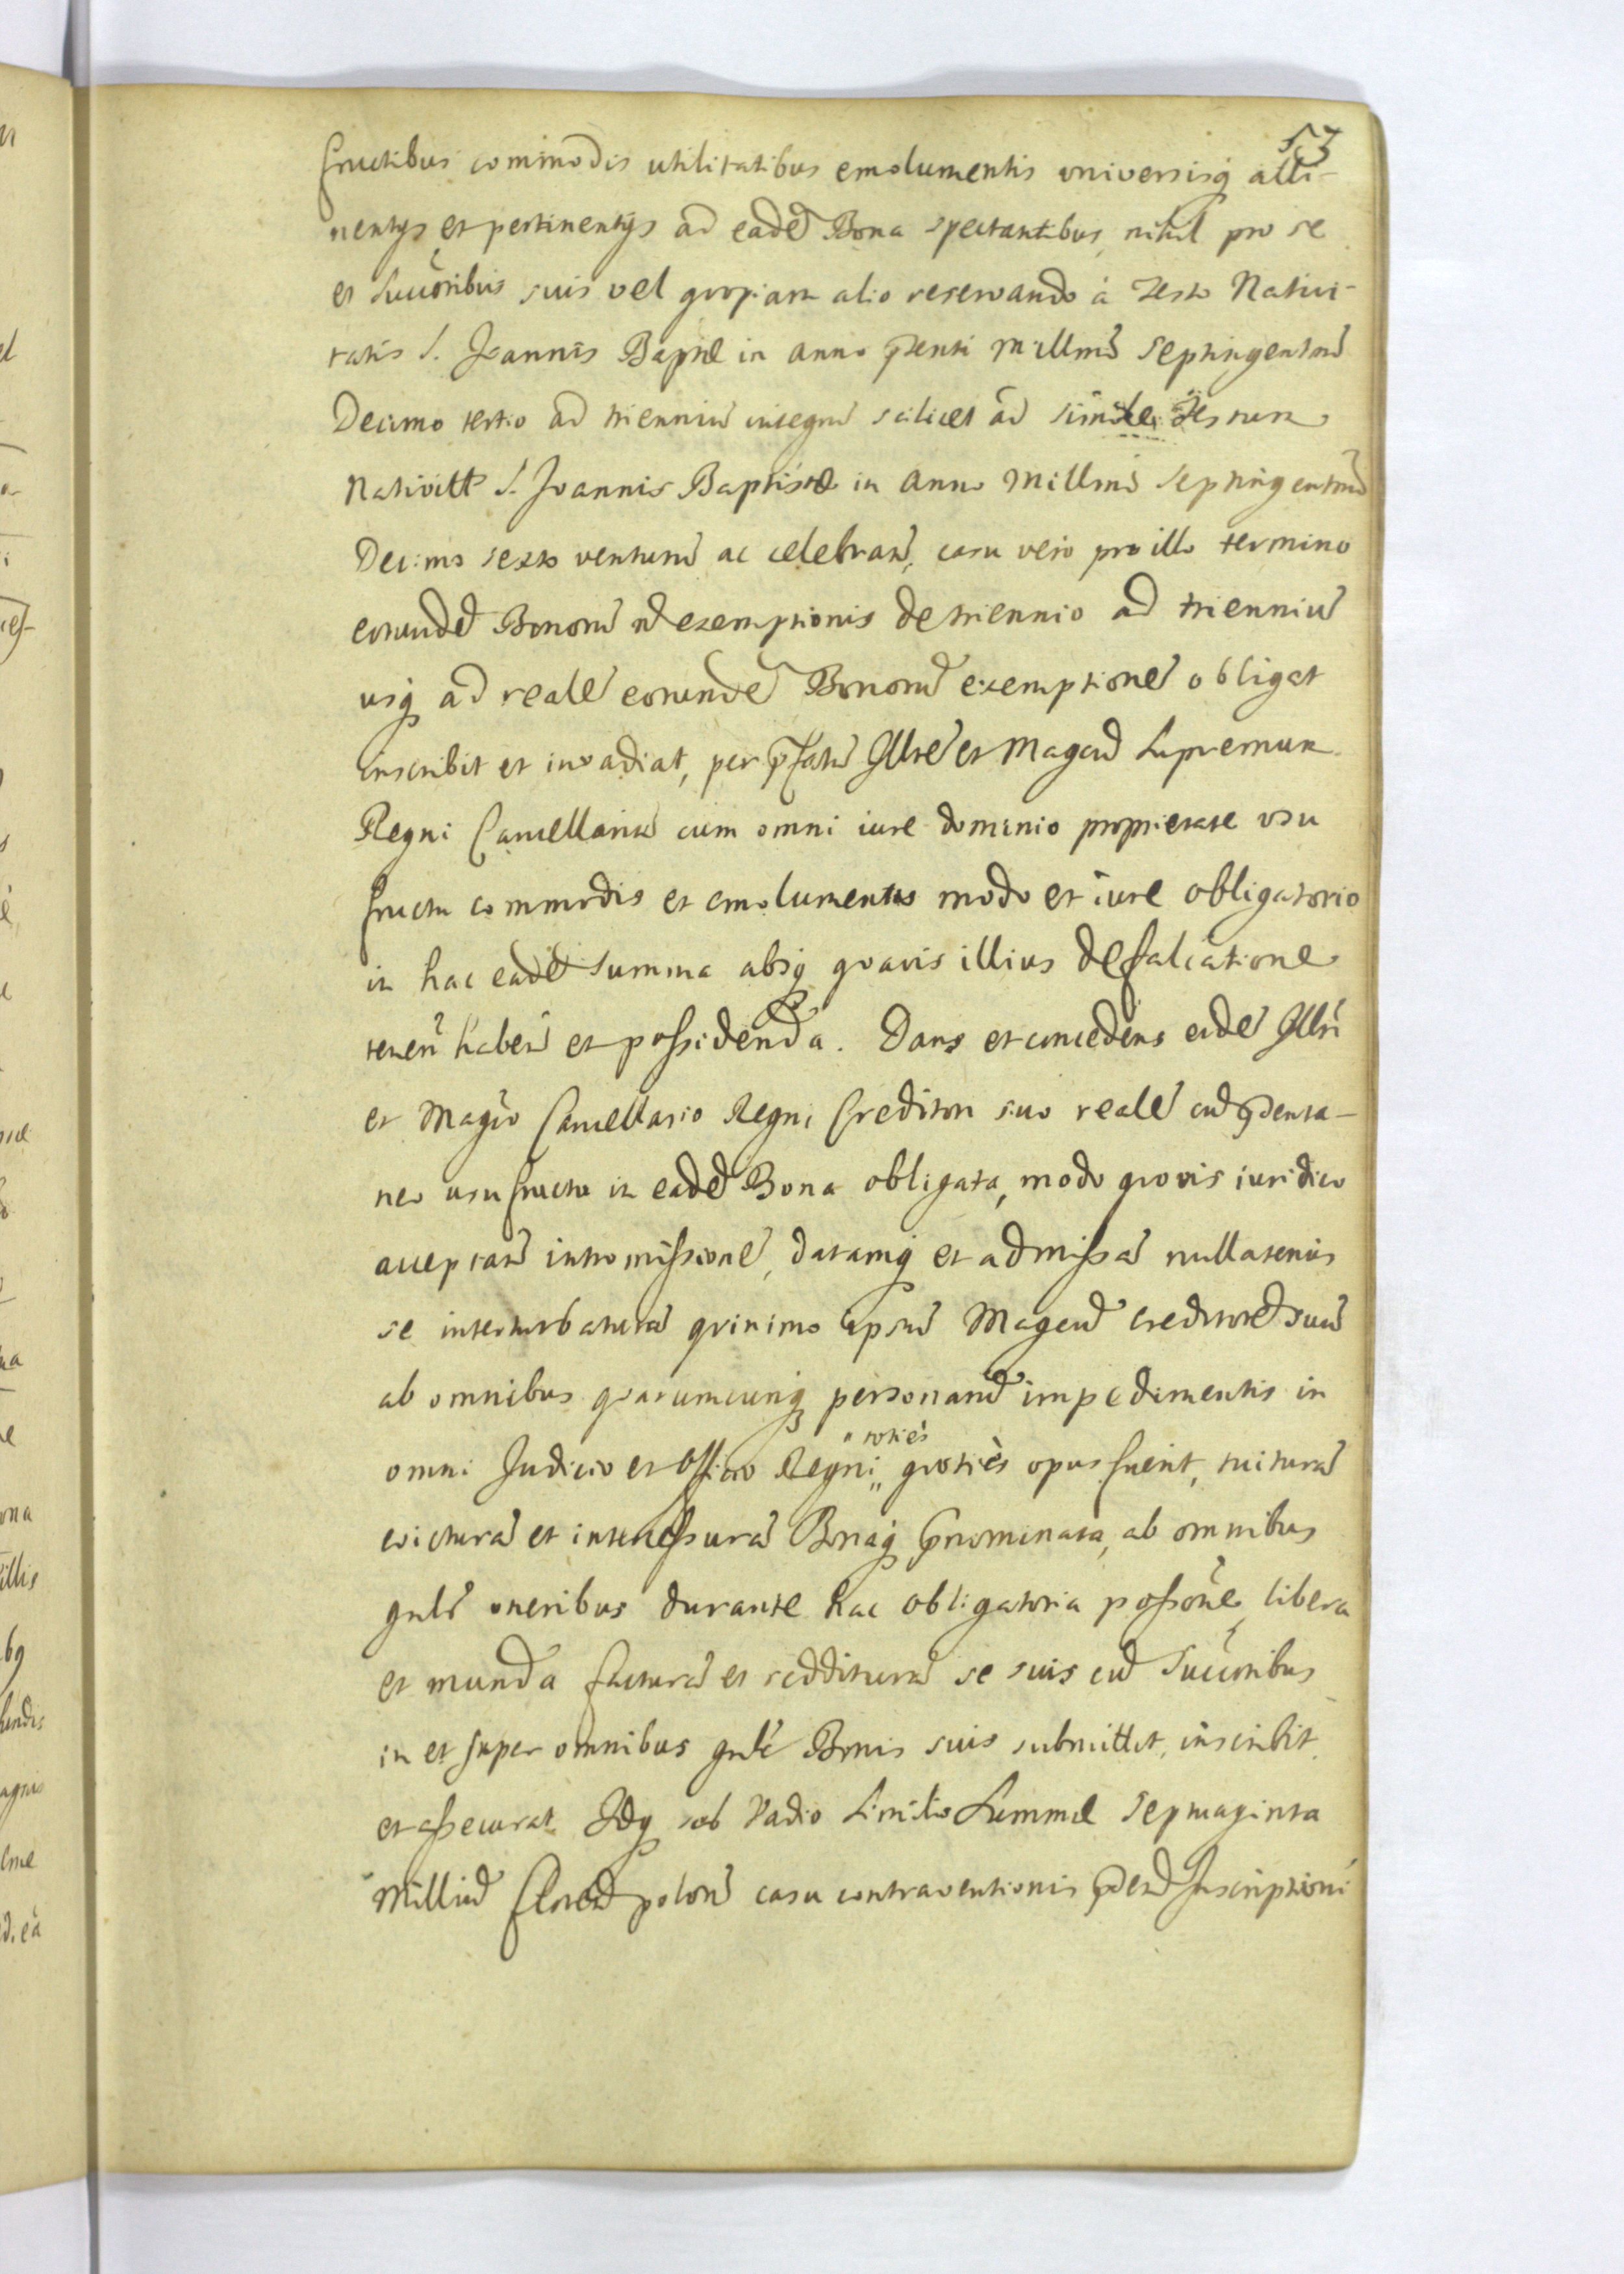 53
fructibus commodis utilitatibus emolumentis universisq; atti-
nentÿs et pertinentÿs ad eadē Bona spectantibus, nihil pro se
et Succõribus suis vel quopiam alio reservando à Festo Nativi-
tatis S. Joannis Baptæ in anno p̃senti Millmō Septingentmō
Decimo tertio ad trienniū integrū scilicet ad simile Festum
Nativitt S. Joannis Baptistæ in Anno Millmō Septingentmō
Decimo sexto venturū ac celebran̄, casu vero pro illo termino
eorundē Bonorū nō exemptionis de triennio ad trienniū
usq; ad realē eorundē Bonorū exemptionē obligat
inscribit et invadiat, per p̃fatū Illrē et Magcū Supremum
Regni Cancellariū cum omni iure dominio proprietate usu
fructu commodis et emolumentis modo et iure obligatorio
in hac eadē summa absq; quavis illius defalcatione
tenen̄ haben̄ et possidenda. Dans et concedens eidē Illri
et Magco Cancellario Regni Creditori suo realē cū p̃senta-
neo usufructu in eadē Bona obligata, modo quovis iuridico
acceptatā intromissionē, datamq; et admissā nullatenus
se interturbaturā quinimo ipsū Magcū Creditorē suū
ab omnibus quarumcunq; personarū impedimentis in
omni Judicio et Officio Regni „ toties quoties opus fuerit, tuiturā
evicturā et interessurā Bonaq; p̃nominata, ab omnibus
gnlr oneribus durante hac obligatoria possõne libera
et munda facturā et reddituram se suis cū Succõribus
in et super omnibus gnlr Bonis suis submittit, inscribit
et assecurat Idq; sub Vadio similis Summæ Septuaginta
Milliū florenō polonō casu contraventionis p̃senti Inscriptioni